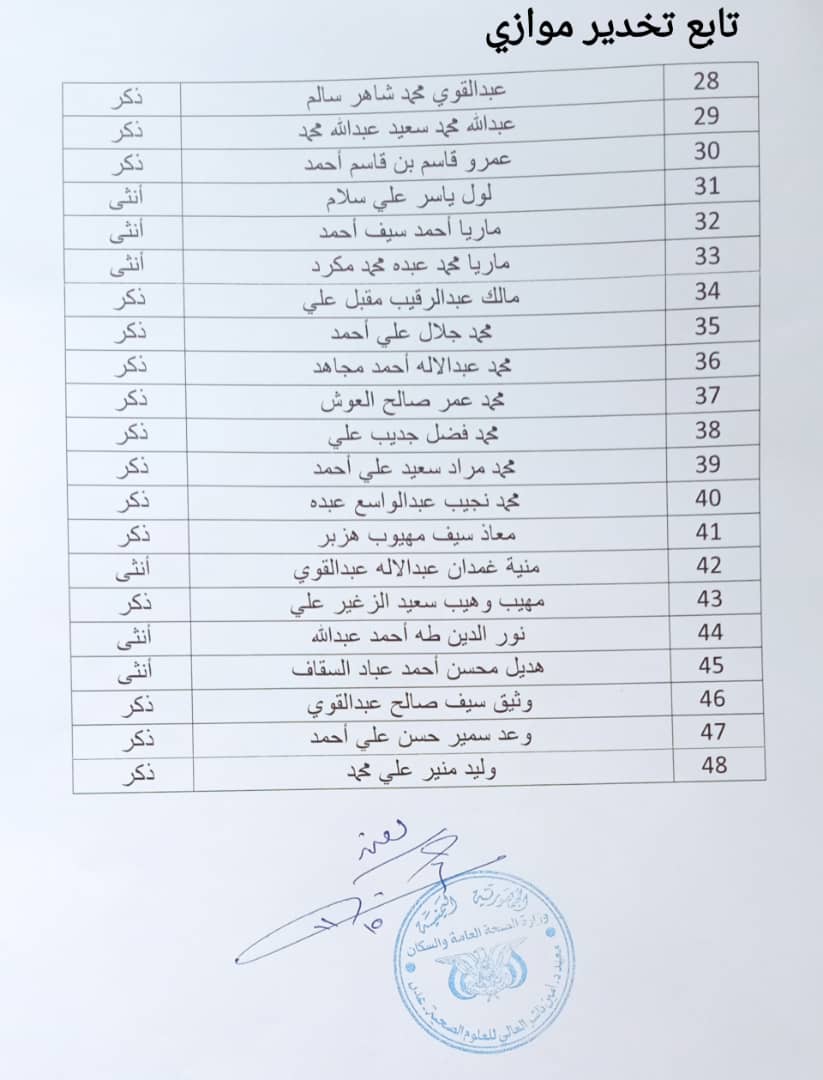 تابع تخدير موازي
28 عبدالقوي محمد شاهر سالم ذكر
29 عبدالله محمد سعيد عبدالله محمد ذكر
30 عمرو قاسم بن قاسم أحمد ذكر
31 لول ياسر علي سلام أنثى
32 ماريا أحمد سيف أحمد أنثى
33 ماريا محمد عبده محمد مكرد أنثى
34 مالك عبدالرقيب مقبل علي ذكر
35 محمد جلال علي أحمد ذكر
36 محمد عبدالاله أحمد مجاهد ذكر
37 محمد عمر صالح العوش ذكر
38 محمد فضل جديب علي ذكر
39 محمد مراد سعيد علي أحمد ذكر
40 محمد نجيب عبدالواسع عبده ذكر
41 معاذ سيف مهيوب هزبر ذكر
42 منية غمدان عبدالاله عبدالقوي أنثى
43 مهيب وهيب سعيد الزغير علي ذكر
44 نور الدين طه أحمد عبدالله أنثى
45 هديل محسن أحمد عباد السقاف أنثى
46 وثيق سيف صالح عبدالقوي ذكر
47 وعد سمير حسن علي أحمد ذكر
48 وليد منير علي محمد ذكر
الجمهورية اليمنية
وزارة الصحة العامة والسكان
معهد د. أمين ناشر العالي للعلوم الصحية - عدن